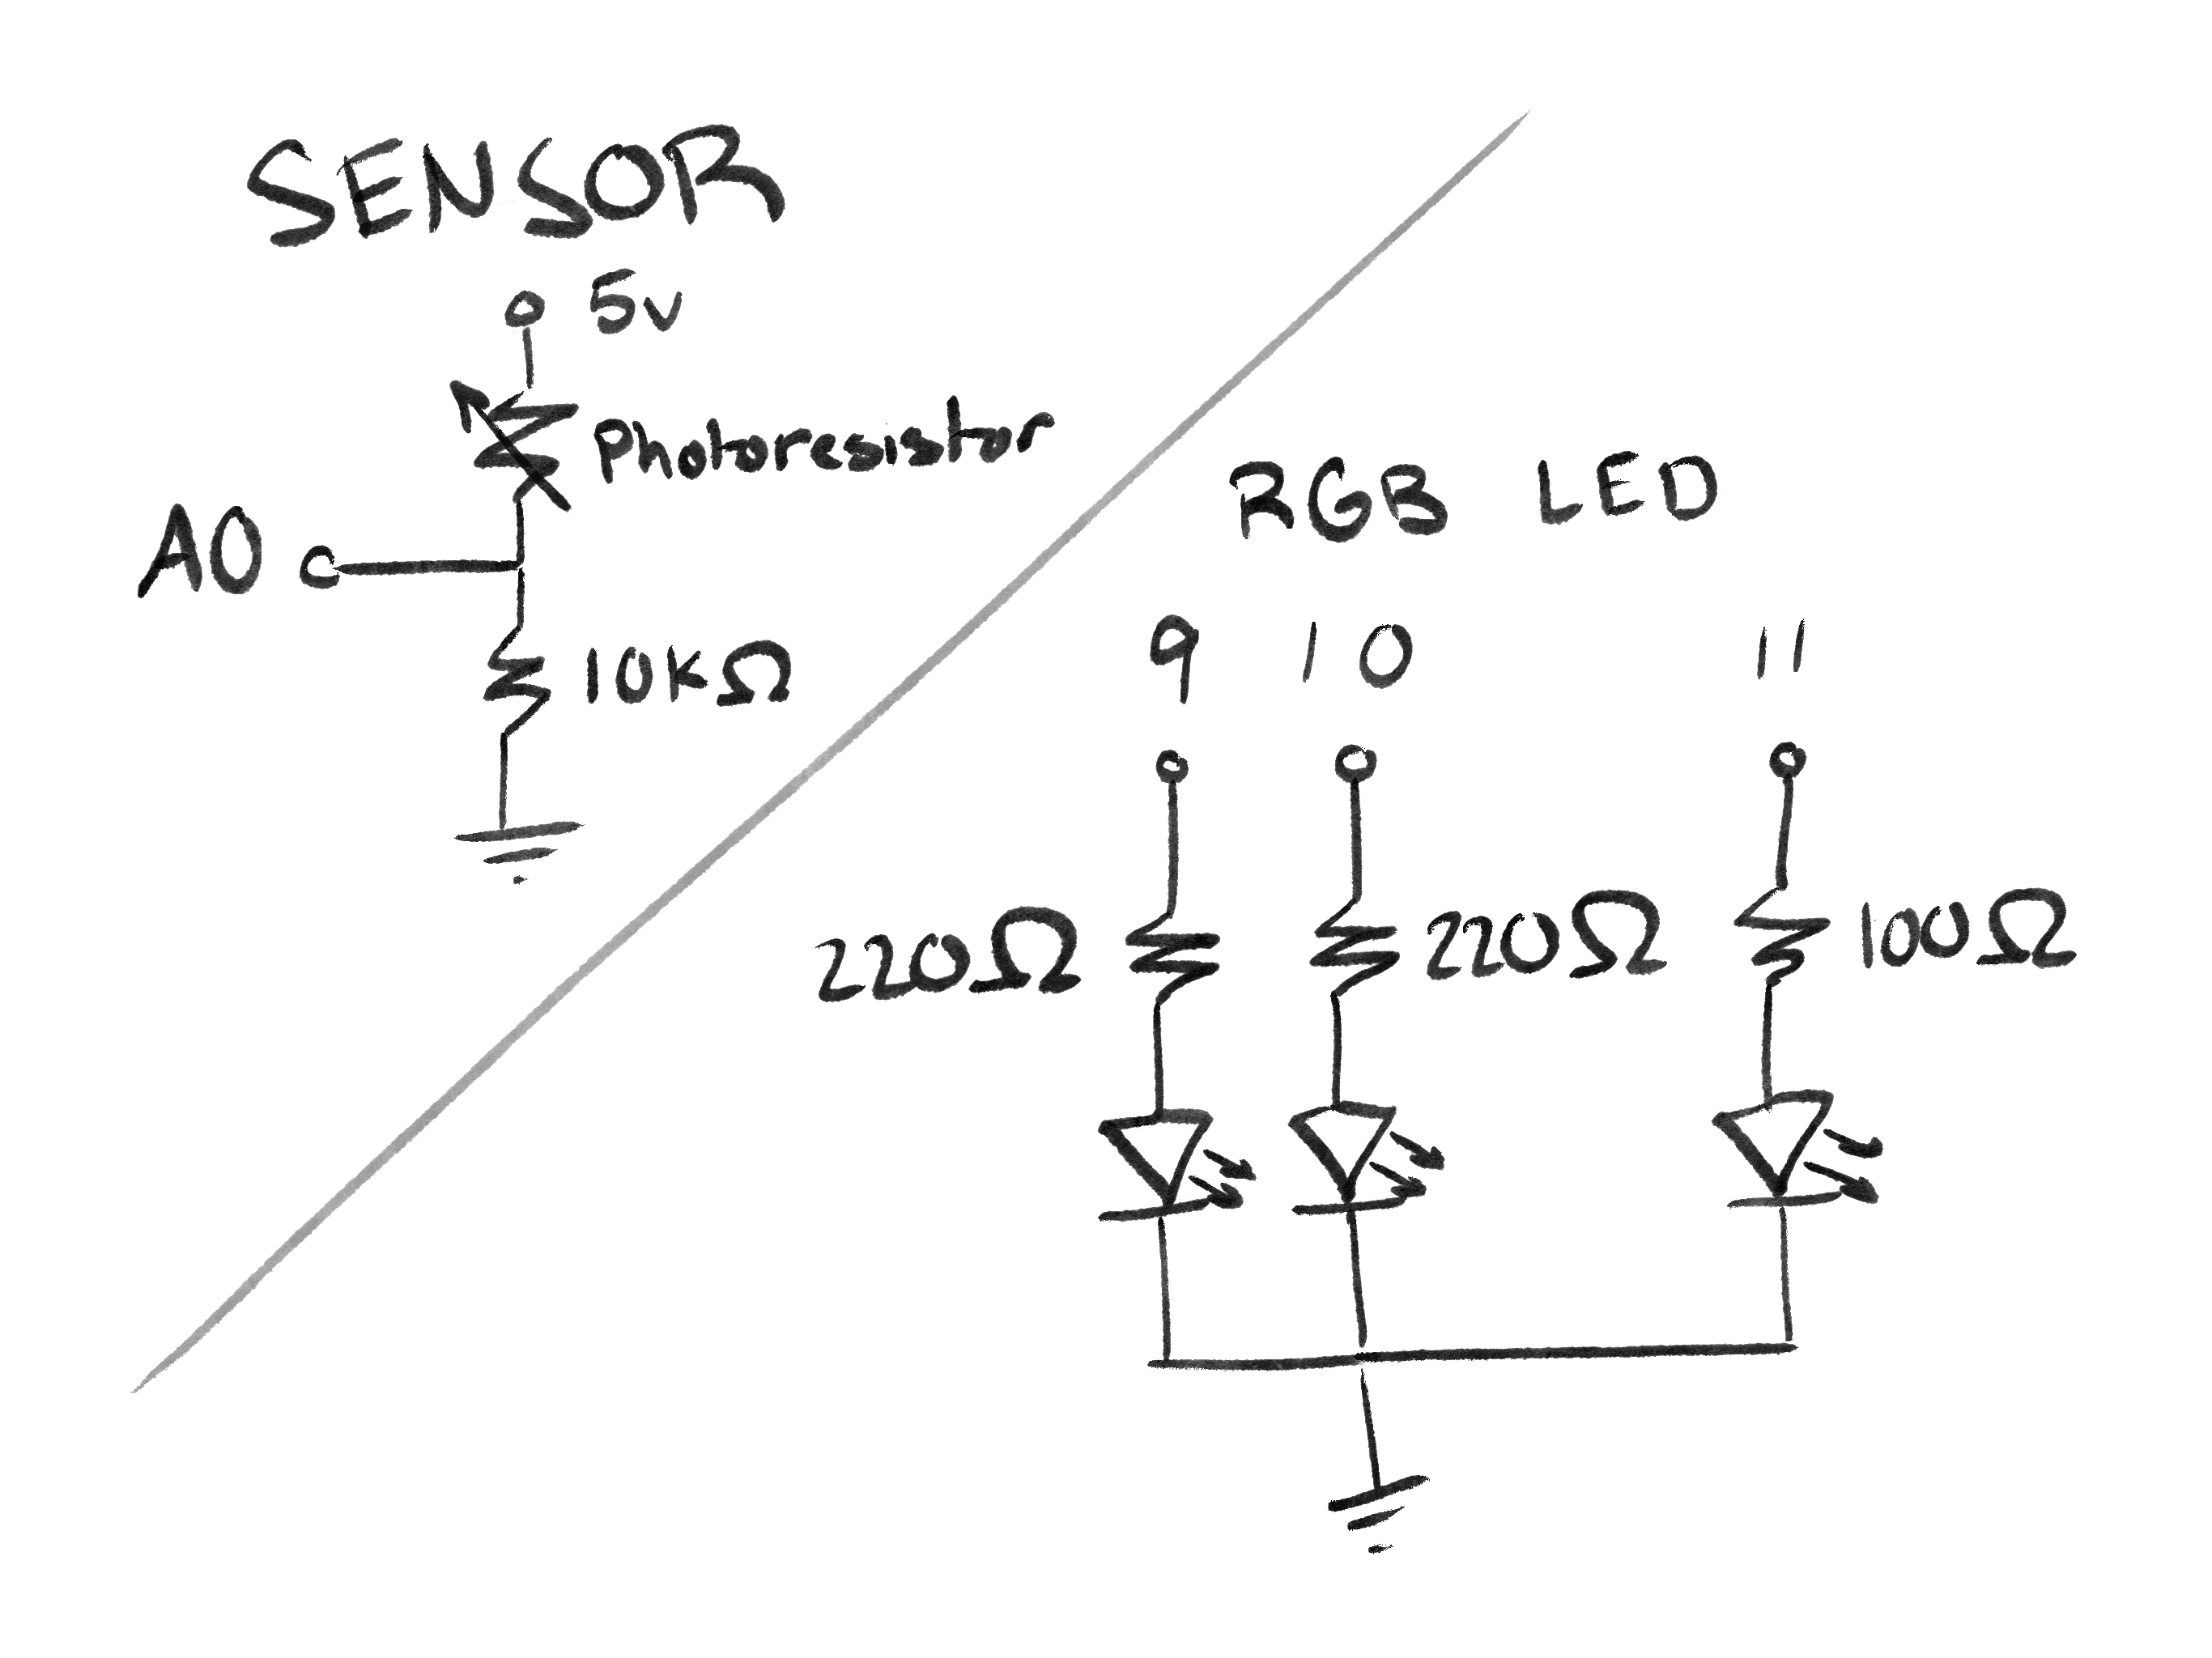 SENSOR
5v
Photoresistor
A0
10KΩ
RGB LED
9 10 11
220Ω 220Ω 100Ω